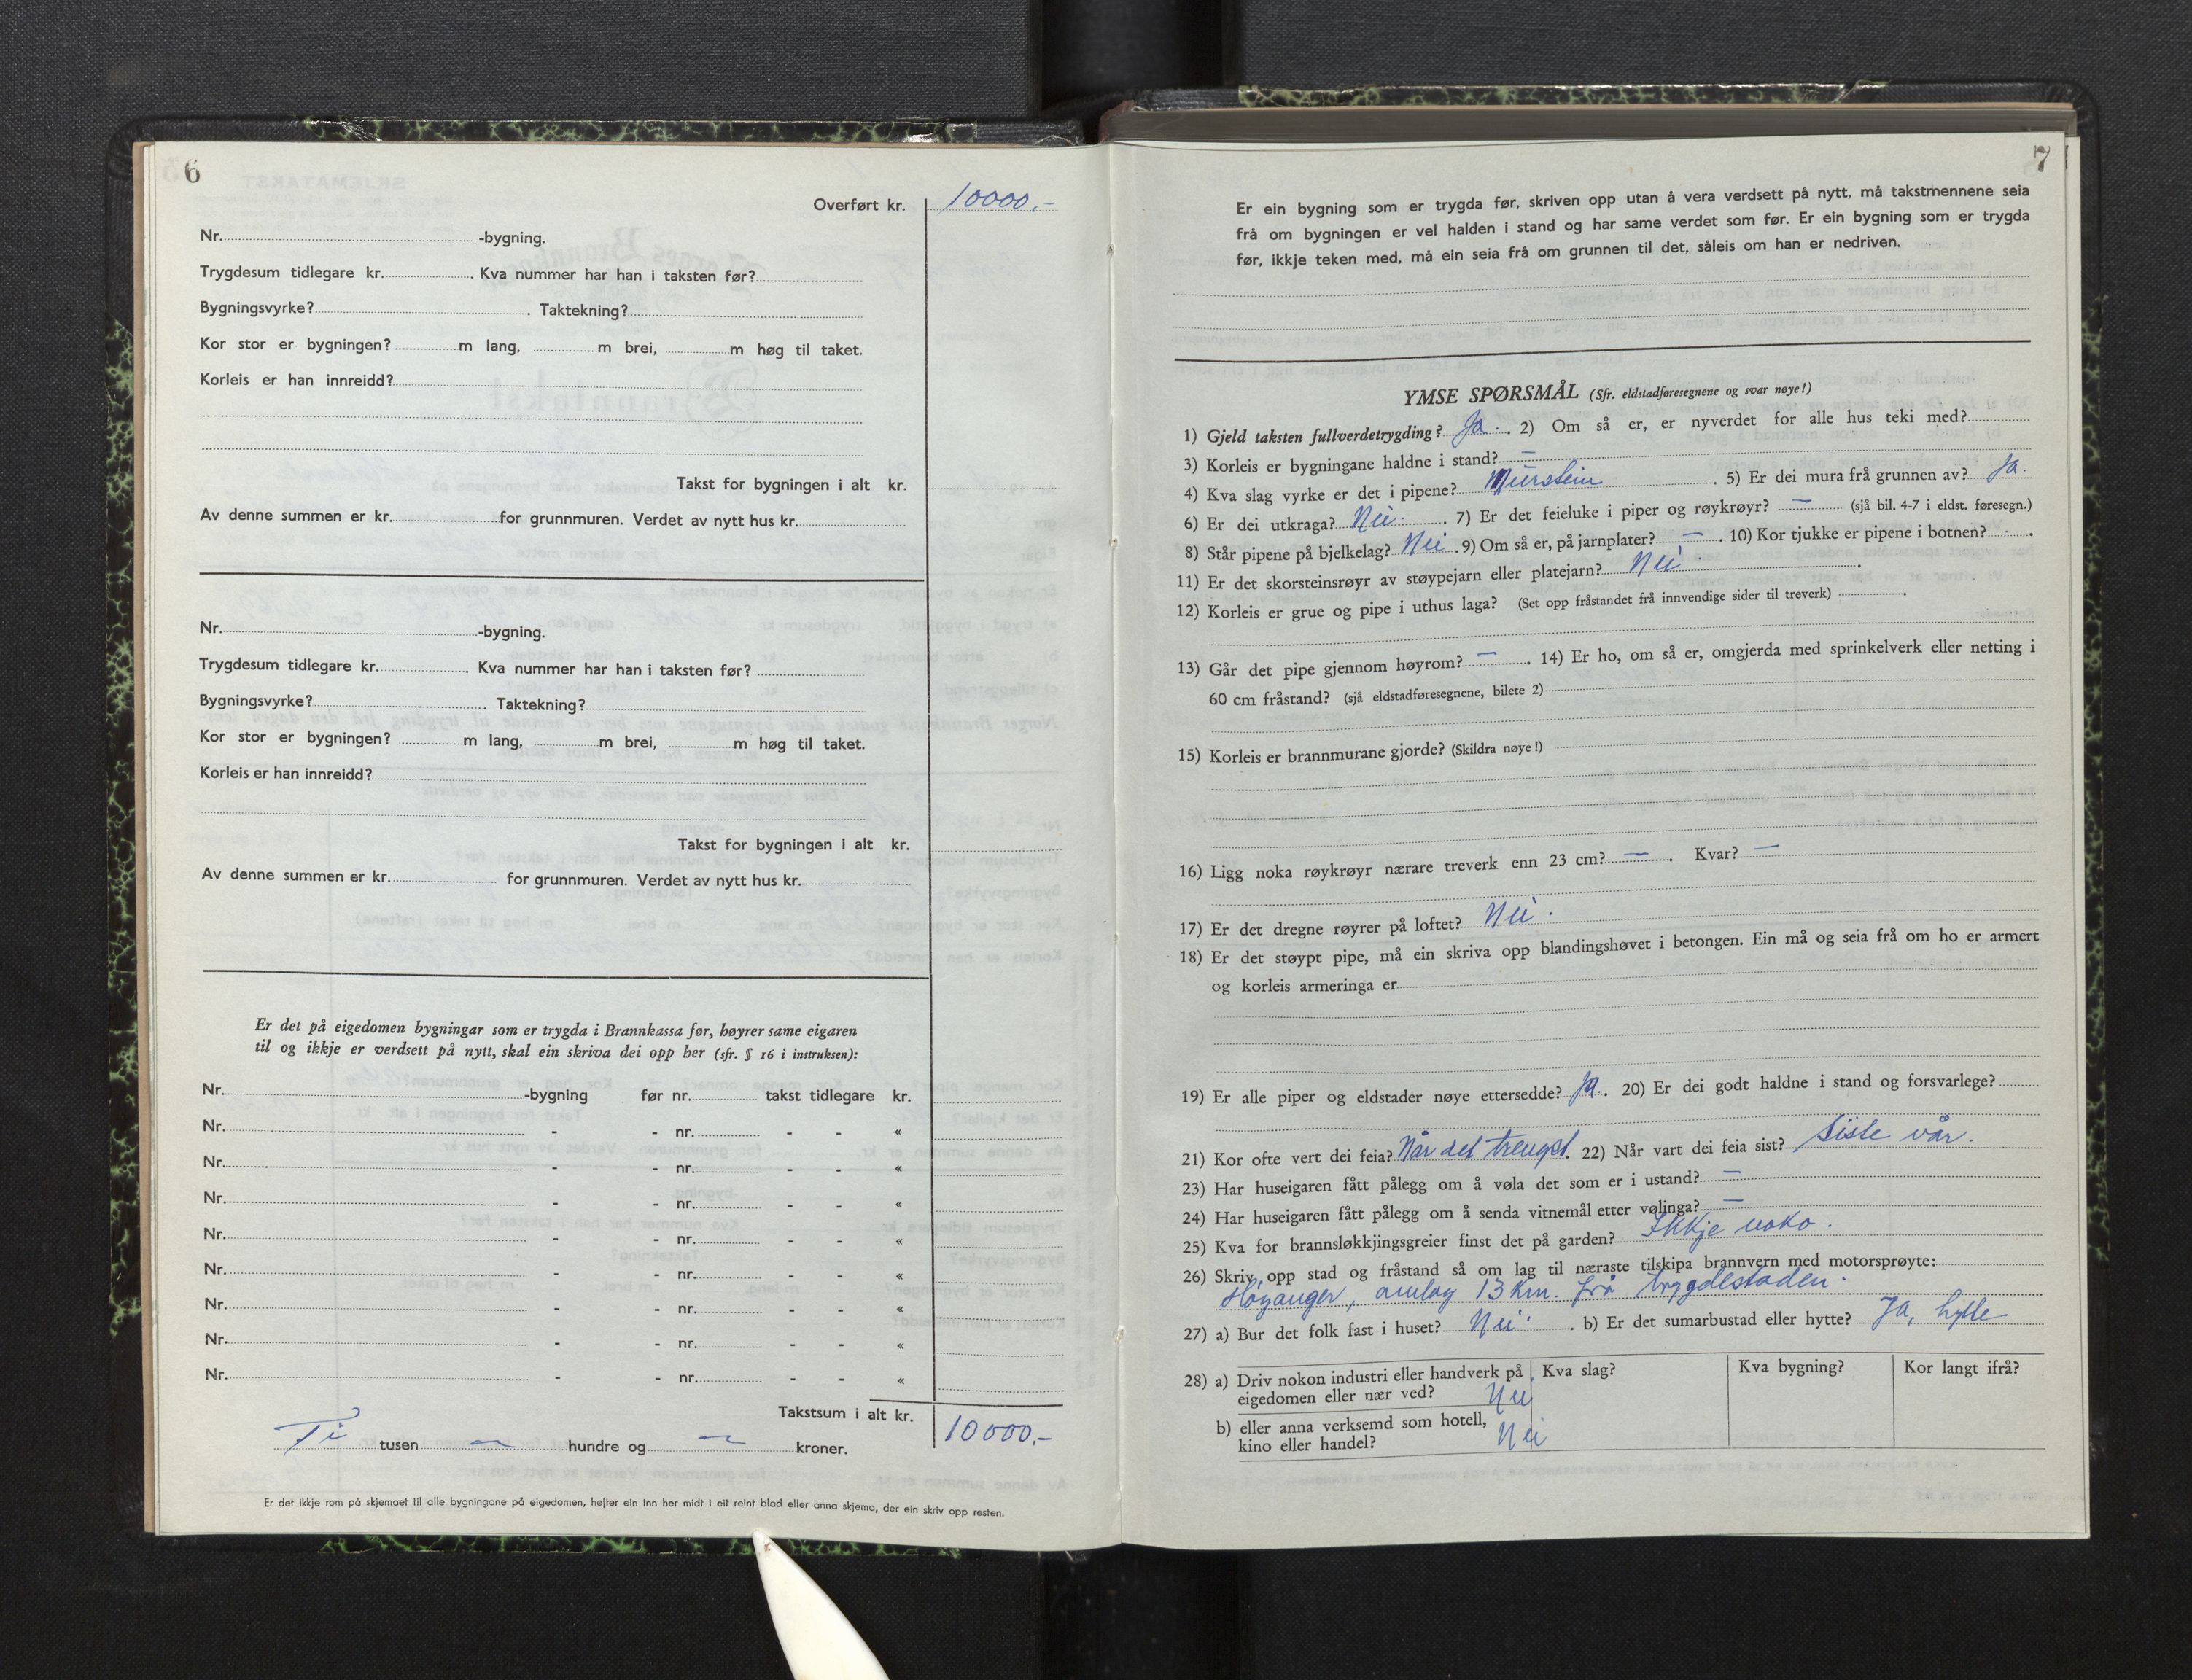 6
Overført kr. 10000.-
Nr. -bygning.
Trygdesum tidlegare kr. . Kva nummer har han i taksten før?
Bygningsvyrke? . Taktekning?
Kor stor er bygningen? m lang, m brei, m høg til taket.
Korleis er han innreidd?
Takst for bygningen i alt kr.
Av denne summen er kr. for grunnmuren. Verdet av nytt hus kr.
Nr. -bygning.
Trygdesum tidlegare kr. . Kva nummer har han i taksten før?
Bygningsvyrke? . Taktekning?
Kor stor er bygningen? m lang, m brei, m høg til taket.
Korleis er han innreidd?
Takst for bygningen i alt kr.
Av denne summen er kr. for grunnmuren. Verdet av nytt hus kr.
Er det på eigedomen bygningar som er trygda i Brannkassa før, høyrer same eigaren
til og ikkje er verdsett på nytt, skal ein skriva dei opp her (sfr. § 16 i instruksen):
Nr. -bygning før nr. takst tidlegare kr.
Nr. - - nr. - - «
Nr. - - nr. - - «
Nr. - - nr. - - «
Nr. - - nr. - - «
Nr. - - nr. - - «
Nr. - - nr. - - «
Nr. - - nr. - - «
Nr. - - nr. - - «
Takstsum i alt kr. 10000.-
Ti tusen — hundre og — kroner.
Er det ikkje rom på skjemaet til alle bygningane på eigedomen, hefter ein inn her midt i eit reint blad eller anna skjema, der ein skriv opp resten.
7
Er ein bygning som er trygda før, skriven opp utan å vera verdsett på nytt, må takstmennene seia
frå om bygningen er vel halden i stand og har same verdet som før. Er ein bygning som er trygda
før, ikkje teken med, må ein seia frå om grunnen til det, såleis om han er nedriven.
YMSE SPØRSMÅL (Sfr. eldstadføresegnene og svar nøye!)
1) Gjeld taksten fullverdetrygding? Ja. . 2) Om så er, er nyverdet for alle hus teki med?
3) Korleis er bygningane haldne i stand? —
4) Kva slag vyrke er det i pipene? Murstein . 5) Er dei mura frå grunnen av? Ja.
6) Er dei utkraga? Nei. . 7) Er det feieluke i piper og røykrøyr? — (sjå bil. 4-7 i eldst. føresegn.)
8) Står pipene på bjelkelag? Nei . 9) Om så er, på jarnplater? — . 10) Kor tjukke er pipene i botnen? .
11) Er det skorsteinsrøyr av støypejarn eller platejarn? Nei .
12) Korleis er grue og pipe i uthus laga? (Set opp fråstandet frå innvendige sider til treverk) .
13) Går det pipe gjennom høyrom? — . 14) Er ho, om så er, omgjerda med sprinkelverk eller netting i
60 cm fråstand? (sjå eldstadføresegnene, bilete 2)
15) Korleis er brannmurane gjorde? (Skildra nøye!)
16) Ligg noka røykrøyr nærare treverk enn 23 cm? — . Kvar? —
17) Er det dregne røyrer på loftet? Nei.
18) Er det støypt pipe, må ein skriva opp blandingshøvet i betongen. Ein må og seia frå om ho er armert
og korleis armeringa er
19) Er alle piper og eldstader nøye ettersedde? Ja. . 20) Er dei godt haldne i stand og forsvarlege?
21) Kor ofte vert dei feia? Når det trengst. 22) Når vart dei feia sist? Siste vår.
23) Har huseigaren fått pålegg om å vøla det som er i ustand? —
24) Har huseigaren fått pålegg om å senda vitnemål etter vølinga? —
25) Kva for brannsløkkjingsgreier finst det på garden? Ikkje noko.
26) Skriv opp stad og fråstand så om lag til næraste tilskipa brannvern med motorsprøyte:
Høyanger, omlag 13 km. frå trygdestaden.
27) a) Bur det folk fast i huset? Nei. . b) Er det sumarbustad eller hytte? Ja, hytte
28) a) Driv nokon industri eller handverk på eigedomen eller nær ved? Nei
Kva slag? Kva bygning? Kor langt ifrå?
b) eller anna verksemd som hotell, kino eller handel? Nei